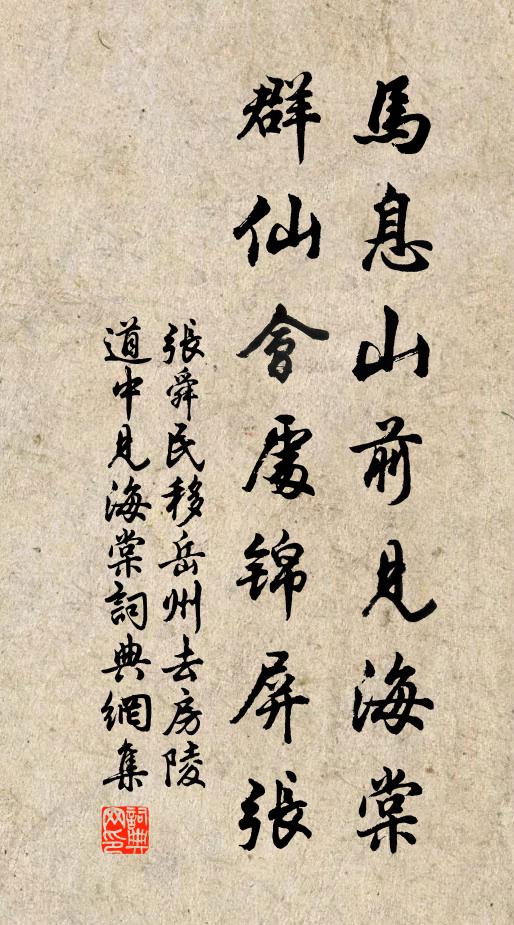 馬息山前見海棠
群仙會處錦屏張
張舜民移岳州去房陵
道中見海棠詞典網集
詞典
网印